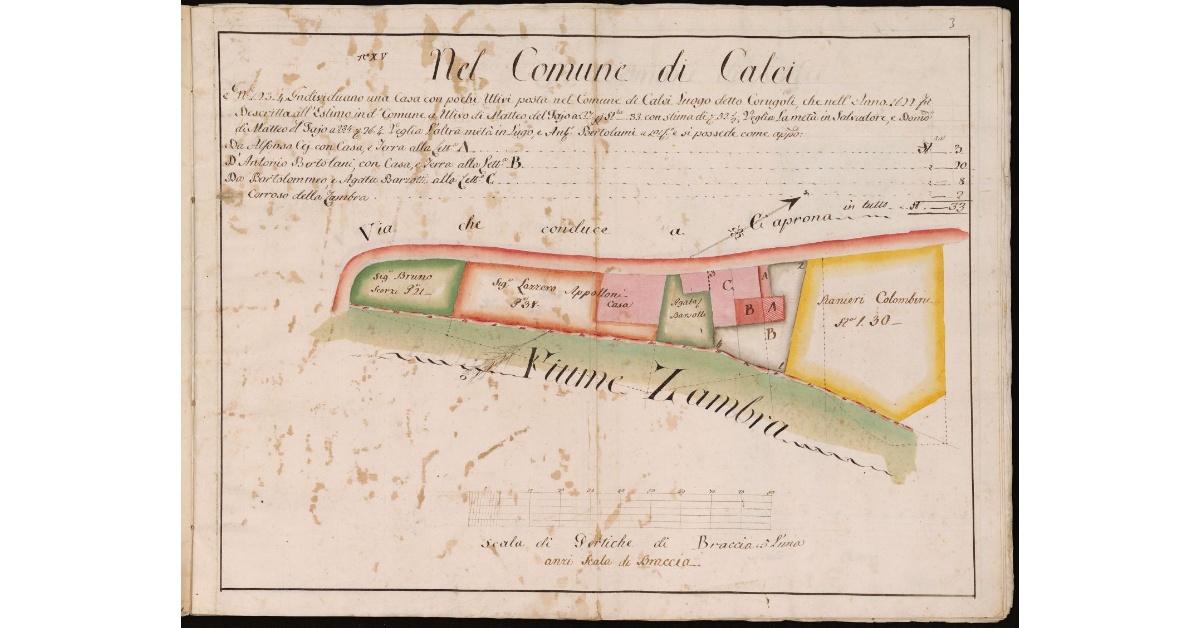 3
N.º XV
Nel Comune di Calci
N.º 1.2.3.4. Individuano una Casa con pochi Ulivi posta nel Comune di Calci Luogo detto Corugoli, che nell'Anno 1622 fù
Descritta all'Estimo in d.º Comune a Ulivo di Matteo del Fajo a 33 con stima di Veglia La metà in Salvadore, e
di Matteo del Fajo a 234 Veglia L'altra metà in Lugo, e Ant.º Bortolani e si possede come app.º:
Da Alfonso Cej con Casa, e Terra alla Lett.ª A. St. 3
D'Antonio Bortolani, con Casa, e Terra alla Lett.ª B. 20
Da Bartolommeo, e Agata Barzotti alla Lett.ª C. 8
Corroso della Zambra 2
in tutto St. 33
Via che conduce a Caprona
Sig.r Bruno
Scorzi P.º 21
Sig.r Lazzero Appolloni
P.º 34
Casa
Agata
Barsotti
3
C
4
2
B
A
B
1
6
Ranieri Colombini
St.ª 1.30
Fiume Zambra
Scala di Pertiche di Braccia 5 L'una
anzi Scala di Braccia